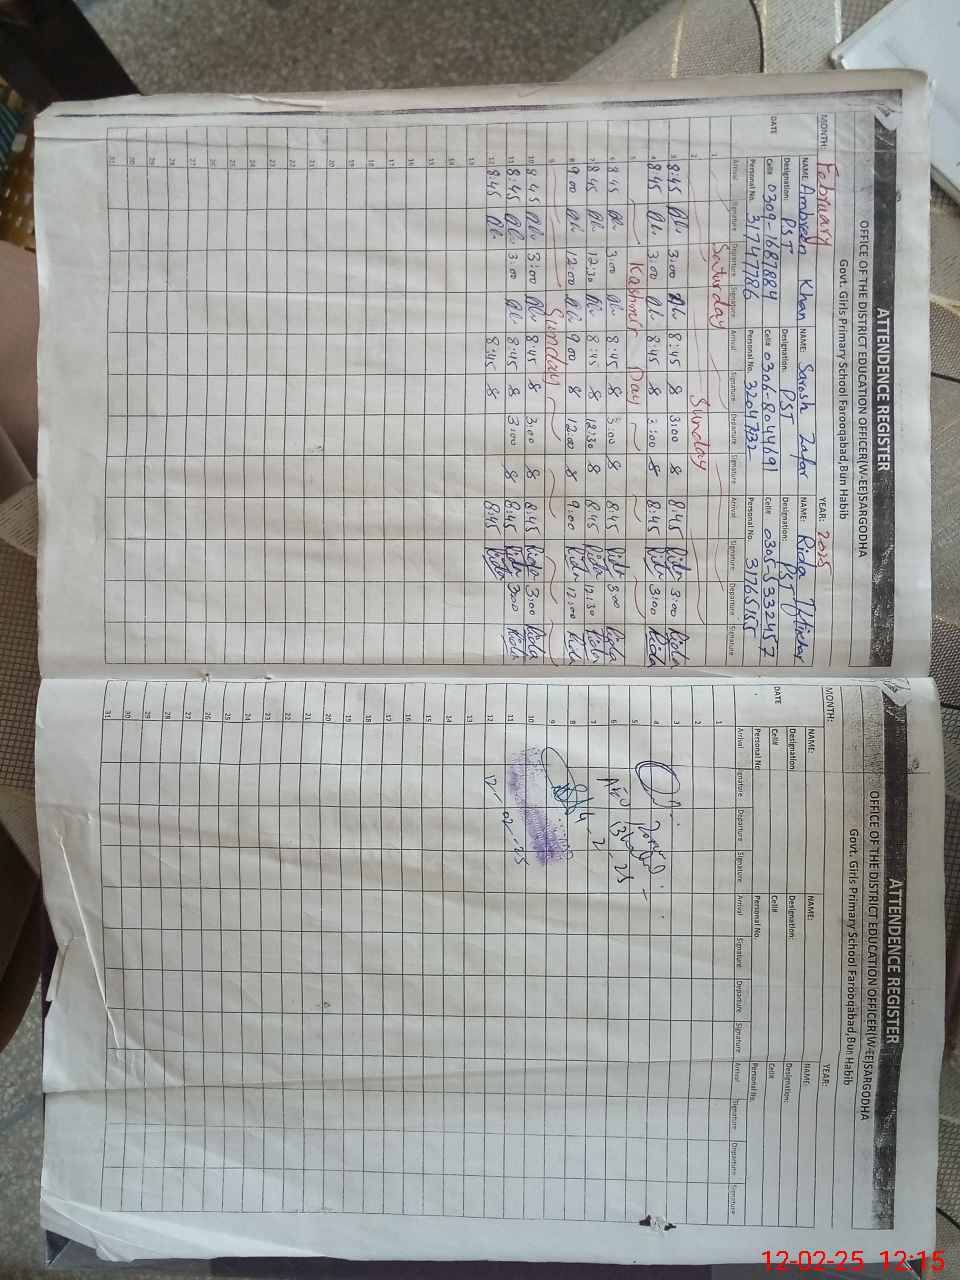 ATTENDENCE REGISTER
OFFICE OF THE DISTRICT EDUCATION OFFICER(W-EE)SARGODHA
Govt. Girls Primary School Farooqabad,Bun Habib
MONTH: February YEAR: 2025
NAME: Ambreen Khan NAME: Sarosh Zafar NAME: Rida Iftikhar
DATE Designation: PST Designation: PST Designation: PST
Cell# 0309-1687884 Cell# 0306-8044691 Cell# 0305-5332457
Personal No. 31747786 Personal No. 32047232 Personal No. 31765155
Arrival Signature Departure Signature Arrival Signature Departure Signature Arrival Signature Departure Signature
1 Saturday
2 Sunday
3 8:45 3:00 8:45 3:00 8:45 Rida 3:00 Rida
4 8:45 3:00 8:45 3:00 8:45 Rida 3:00 Rida
5 Kashmir Day
6 8:45 3:00 8:45 3:00 8:45 Rida 3:00 Rida
7 8:45 12:30 8:45 12:30 8:45 Rida 12:30 Rida
8 9:00 12:00 9:00 12:00 9:00 Rida 12:00 Rida
9 Sunday
10 8:45 3:00 8:45 3:00 8:45 Rida 3:00 Rida
11 8:45 3:00 8:45 3:00 8:45 Rida 3:00 Rida
12 8:45 8:45 8:45 Rida
13
14
15
16
17
18
19
20
21
22
23
24
25
26
27
28
29
30
31
ATTENDENCE REGISTER
OFFICE OF THE DISTRICT EDUCATION OFFICER(W-EE)SARGODHA
Govt. Girls Primary School Farooqabad,Bun Habib
MONTH: YEAR:
NAME: NAME: NAME:
DATE Designation: Designation: Designation:
Cell# Cell# Cell#
Personal No Personal No Personal No.
Arrival Signature Departure Signature Arrival Signature Departure Signature Arrival Signature Departure Signature
1
2
3
4
5
6
7
8
9
10
11
12
13
14
15
16
17
18
19
20
21
22
23
24
25
26
27
28
29
30
31
4-2-25
12-02-25
12-02-25 12:15